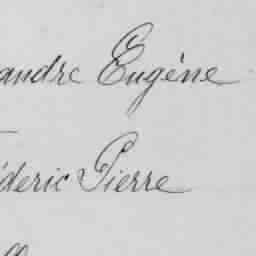 andre Eugène
déric Pierre